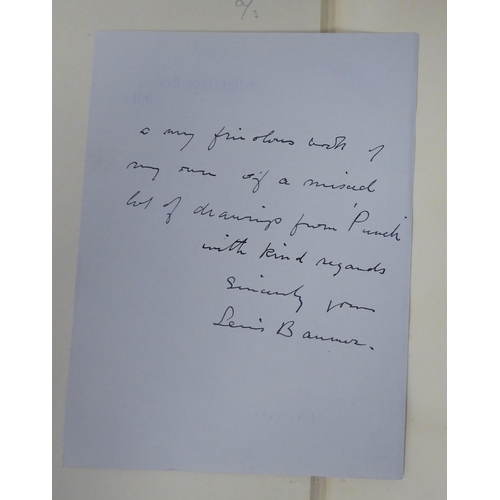 a very frivolous work of
my own of a mixed
lot of drawings from 'Punch
with kind regards
Sincerely yours
Lewis Baumer.